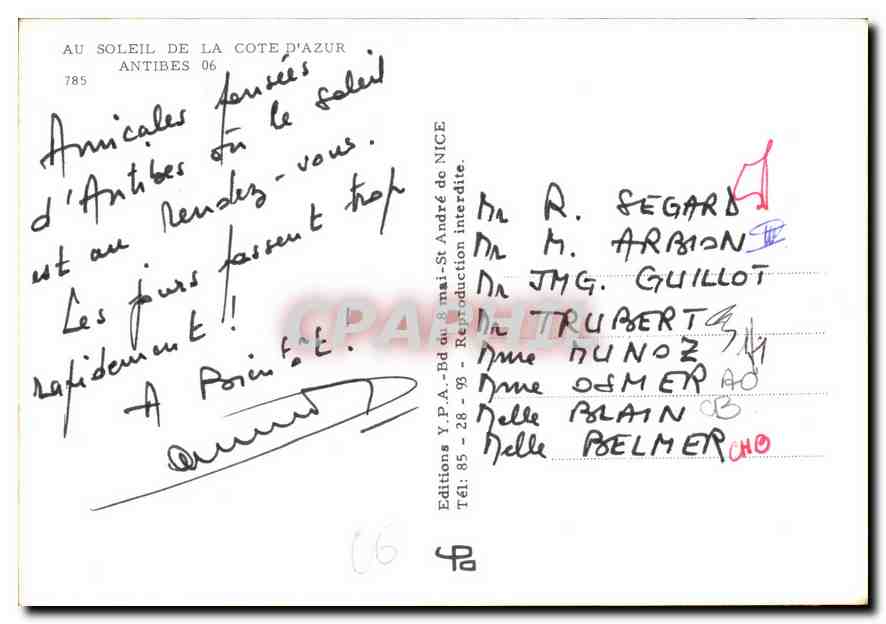 AU SOLEIL DE LA COTE D'AZUR
ANTIBES 06
785
Amicales pensées
d'Antibes où le soleil
est au rendez-vous.
Les jours passent trop
rapidement !
A Bientôt !
Editions Y.P.A.-Bd du 8 mai-St André de NICE
Tél: 85 - 28 - 93 - Reproduction interdite.
CPARAMA
Mr R. SEGARD
Mr M. ARBION
Mr JMG. GUILLOT
Mr TRUBERT
Mme MUNOZ
Mme OSMER AO
Melle BLAIN CB
Melle BELMER CHB
C6